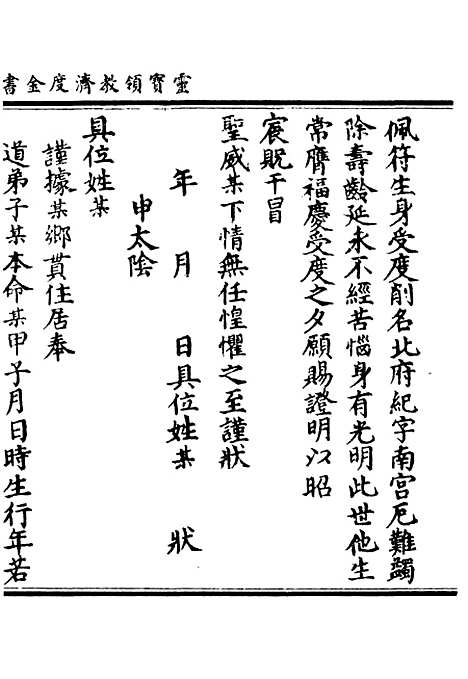 靈寶領教濟度金書
佩符生身受度削名北府紀字南宫厄難蠲
除壽齡延永不經苦惱身有光明此世他生
常膺福慶受度之夕願賜證明以昭
宸貺干冒
聖威某下情無任惶懼之至謹狀
年月日具位姓某狀
申太陰
具位姓某
謹據某鄉貫住居奉
道弟子某本命某甲子月日時生行年若